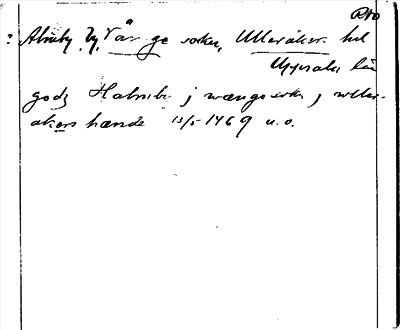 RAO
? Alnby, By, Vänge socken, Ulleråker hd
Uppsala län
godz Halnbi j wænge sokn j vller-
akers hænde 13/5 1469 u.o.